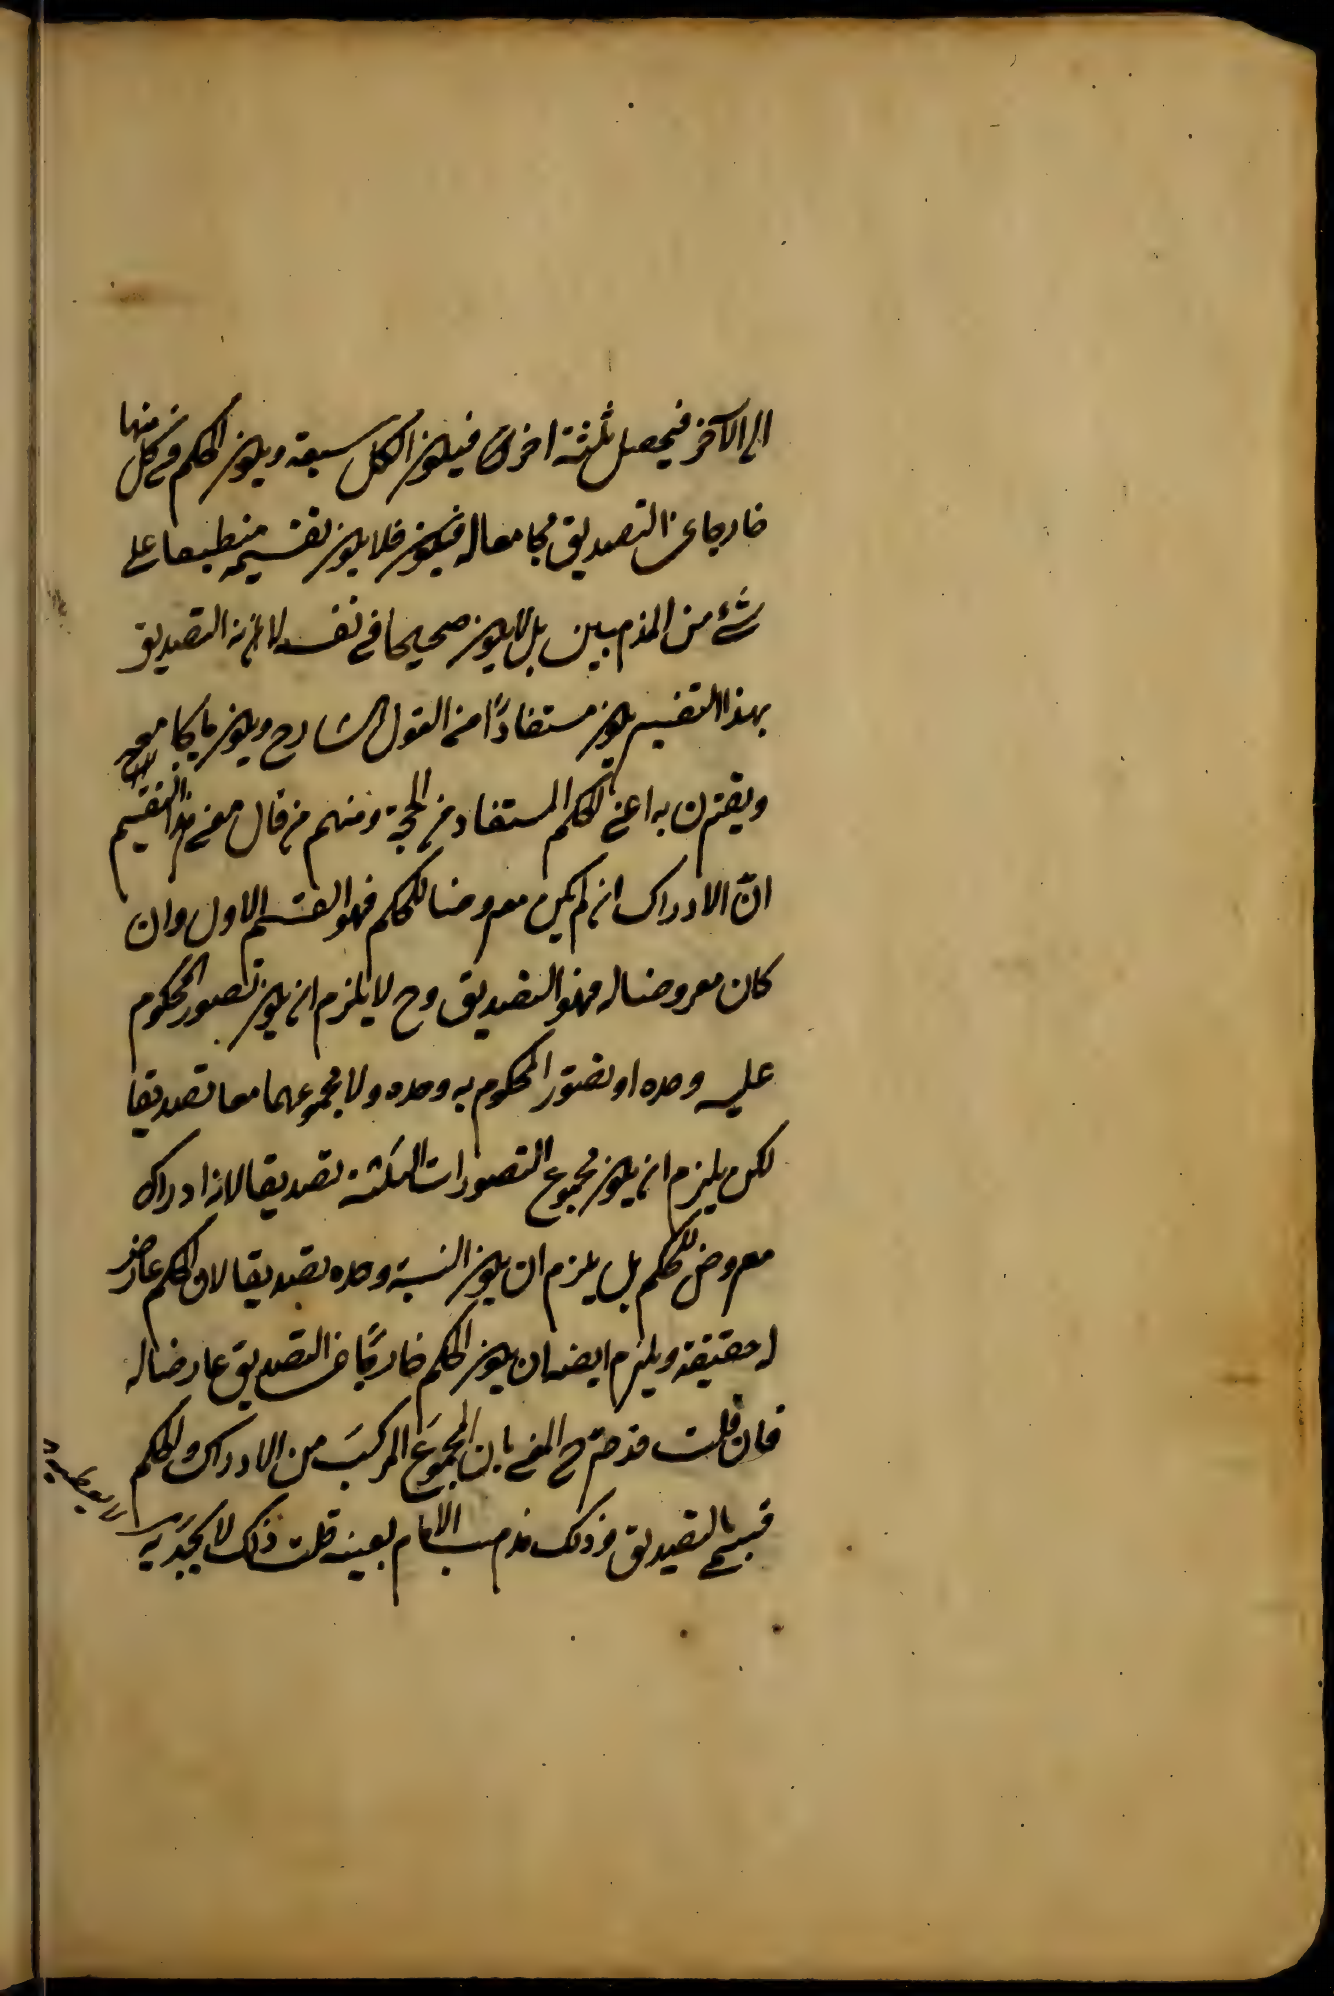 الى الآخر فيحصل ثلثة اخرى فيكون الكل سبعة ويكون الحكم في كل منها
خارجا عن التصديق مجامعا له فيكون فلا يكون تقسيمه منطبعا على
شئ من المذهبين بل لا يكون صحيحا في نفسه لانه التصديق
بهذا التقسيم يكون مستفادًا من القول الشارح ويكون ما يجامعه
ويقترن به اعني الحكم المستفاد من الحجة ومنهم من قال معنى هذا التقسيم
انّ الادراك ان لم يكن معروضا للحكم فهو القسم الاول وان
كان معروضا له فهو التصديق وح لا يلزم ان يكون تصور المحكوم
عليه وحده او تصوّر المحكوم به وحده ولا مجموعهما معا تصديقا
لكن يلزم ان يكون مجموع التصورات الثلثة تصديقا لانه ادراك
معروض للحكم بل يلزم ان يكون النسبة وحده تصديقا لان الحكم عارض
له حقيقة ويلزم ايضه ان يكون الحكم خارجًا عن التصديق عارضا له
فان قلت قد صرّح المص بان المجموع المركب من الادراك والحكم
يسمى بالتصديق وذلك مذهب الامام بعينه قلت ذلك لا يجديه